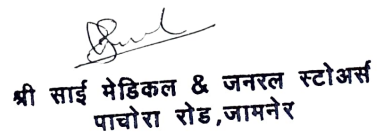 श्री साई मेडिकल & जनरल स्टोअर्स
पाचोरा रोड,जामनेर